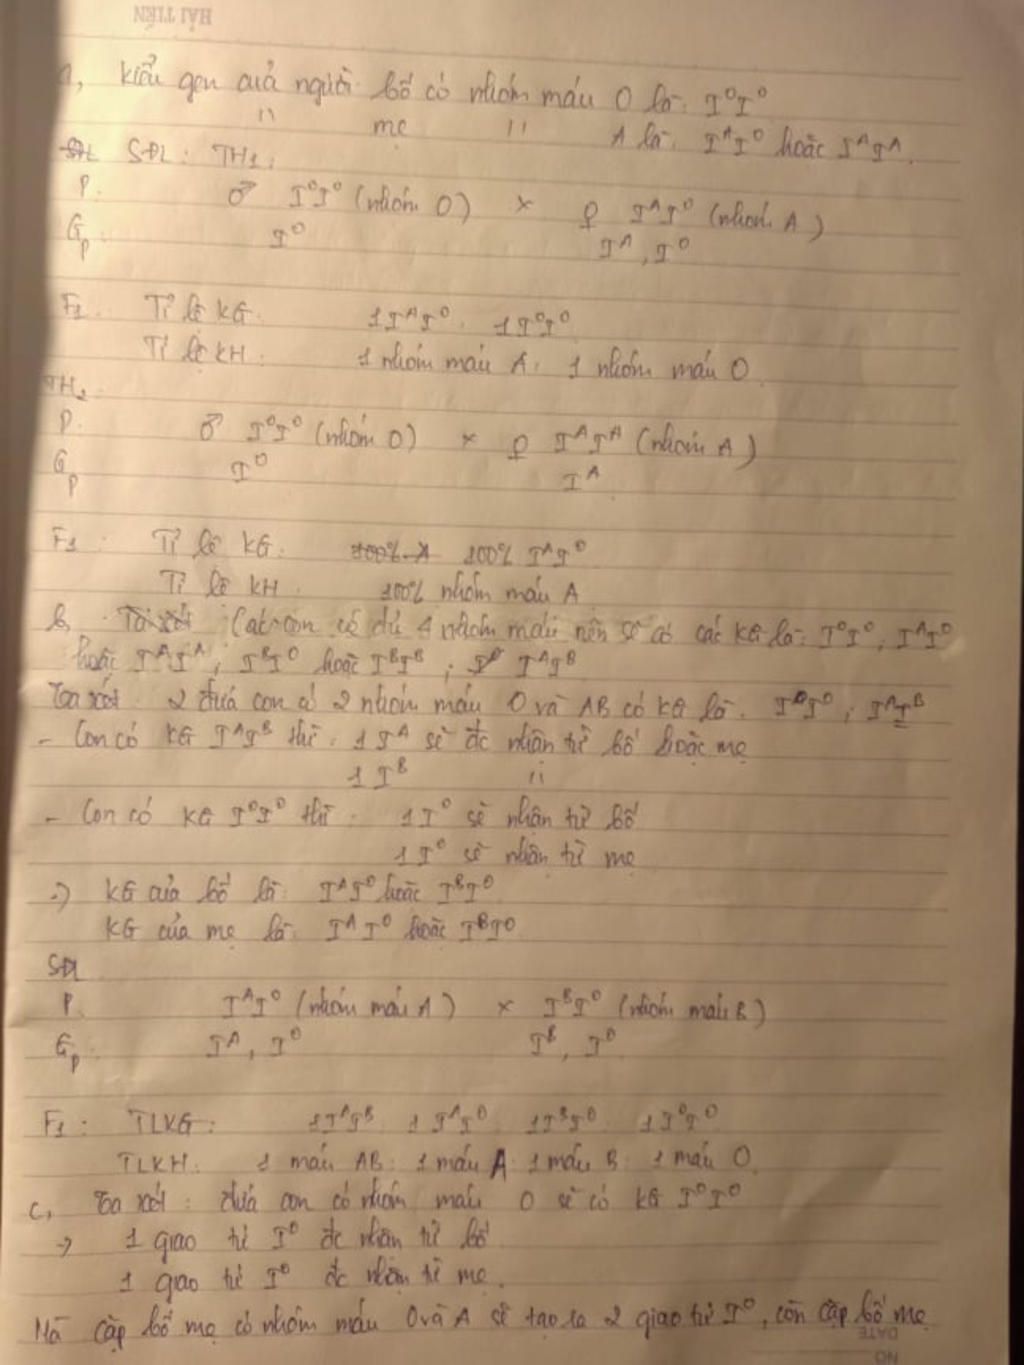 HẢI TIẾN
a, kiểu gen của người bố có nhóm máu O là: I^O I^O
" mẹ " A là: I^A I^O hoặc I^A I^A.
SĐL: TH1:
P: ♂ I^O I^O (nhóm O) × ♀ I^A I^O (nhóm A)
Gp: I^O I^A, I^O
F1: Tỉ lệ KG: 1 I^A I^O : 1 I^O I^O
Tỉ lệ KH: 1 nhóm máu A : 1 nhóm máu O
TH2
P: ♂ I^O I^O (nhóm O) × ♀ I^A I^A (nhóm A)
Gp I^O I^A
F1: Tỉ lệ KG: 100% I^A I^O
Tỉ lệ KH: 100% nhóm máu A
b, Các con có đủ 4 nhóm máu nên sẽ có các KG là: I^O I^O; I^A I^O
hoặc I^A I^A; I^B I^O hoặc I^B I^B; I^A I^B
Ta xét: 2 đứa con có 2 nhóm máu O và AB có KG là: I^O I^O; I^A I^B
- Con có KG I^A I^B thì: 1 I^A sẽ đc nhận từ bố hoặc mẹ
1 I^B "
- Con có KG I^O I^O thì: 1 I^O sẽ nhận từ bố
1 I^O sẽ nhận từ mẹ
=) KG của bố là: I^A I^O hoặc I^B I^O
KG của mẹ là: I^A I^O hoặc I^B I^O
SĐL
P: I^A I^O (nhóm máu A) × I^B I^O (nhóm máu B)
Gp: I^A, I^O I^B, I^O
F1: TLKG: 1 I^A I^B : 1 I^A I^O : 1 I^B I^O : 1 I^O I^O
TLKH: 1 máu AB : 1 máu A : 1 máu B : 1 máu O
c, Ta xét: đứa con có nhóm máu O sẽ có KG I^O I^O
-> 1 giao tử I^O đc nhận từ bố
1 giao tử I^O đc nhận từ mẹ.
Mà cặp bố mẹ có nhóm máu O và A sẽ tạo ra 2 giao tử I^O, còn cặp bố mẹ
DATE
NO